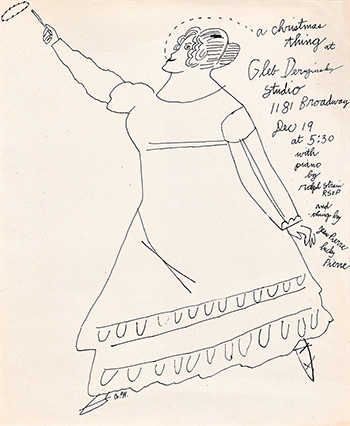 a christmas
thing at
Gleb Derujinsky
Studio
1181 Broadway
Dec 19
at 5:30
with
piano
by
ralph Strain
RSVP
and
things by
Jean Pierre
Pierre